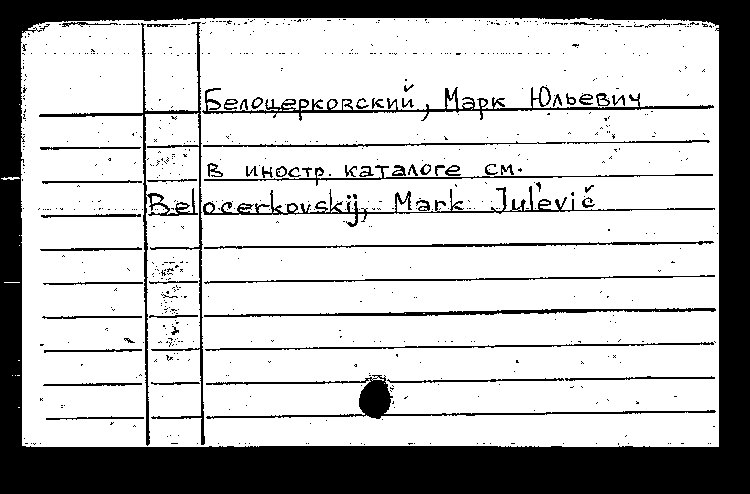 Белоцерковский, Марк Юльевич
в иностр. каталоге см.
Belocerkovskij, Mark Jul'evič